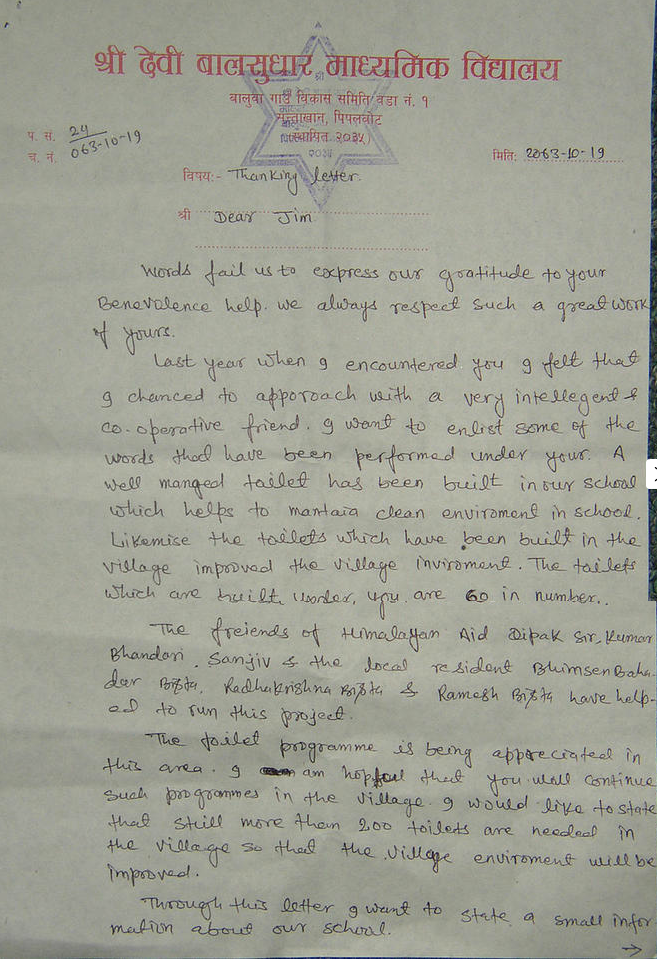 श्री देवी बालसुधार माध्यमिक विद्यालय
बालुवा गाउँ विकास समिति वडा नं. १
सुन्ताखान, पिपलबोट
(स्थापित २०३५)
प. सं. 24
च. नं. 063-10-19
मिति: 2063-10-19
विषय:- Thanking letter.
श्री Dear Jim
Words fail us to express our gratitude to your
Benevalence help. we always respect such a great work
of yours.
Last year when I encountered you I felt that
I chanced to apporoach with a very intellegent &
co-operative friend. I want to enlist some of the
words that have been performed under your. A
well manged toilet has been built in our school
which helps to mantain clean enviroment in school.
Likewise the toilets which have been built in the
village improved the village inviroment. The toilets
which are built under, you are 60 in number..
The freiends of Himalayan Aid Dipak Sir, Kumar
Bhandari, Sanjiv & the local resident Bhimsen Baha-
dar Bista, Radhakrishna Bista & Ramesh Bista have help-
ed to run this project.
The toilet programme is being appreciated in
this area. I am hopful that you will continue
such programmes in the village. I would like to state
that still more than 200 toilets are needed in
the village so that the village enviroment will be
improved.
Through this letter I want to state a small infor-
mation about our school.
→